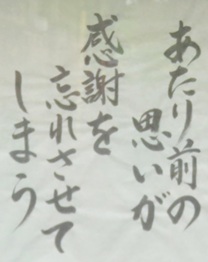 あたり前の
思いが
感謝を
忘れさせて
しまう